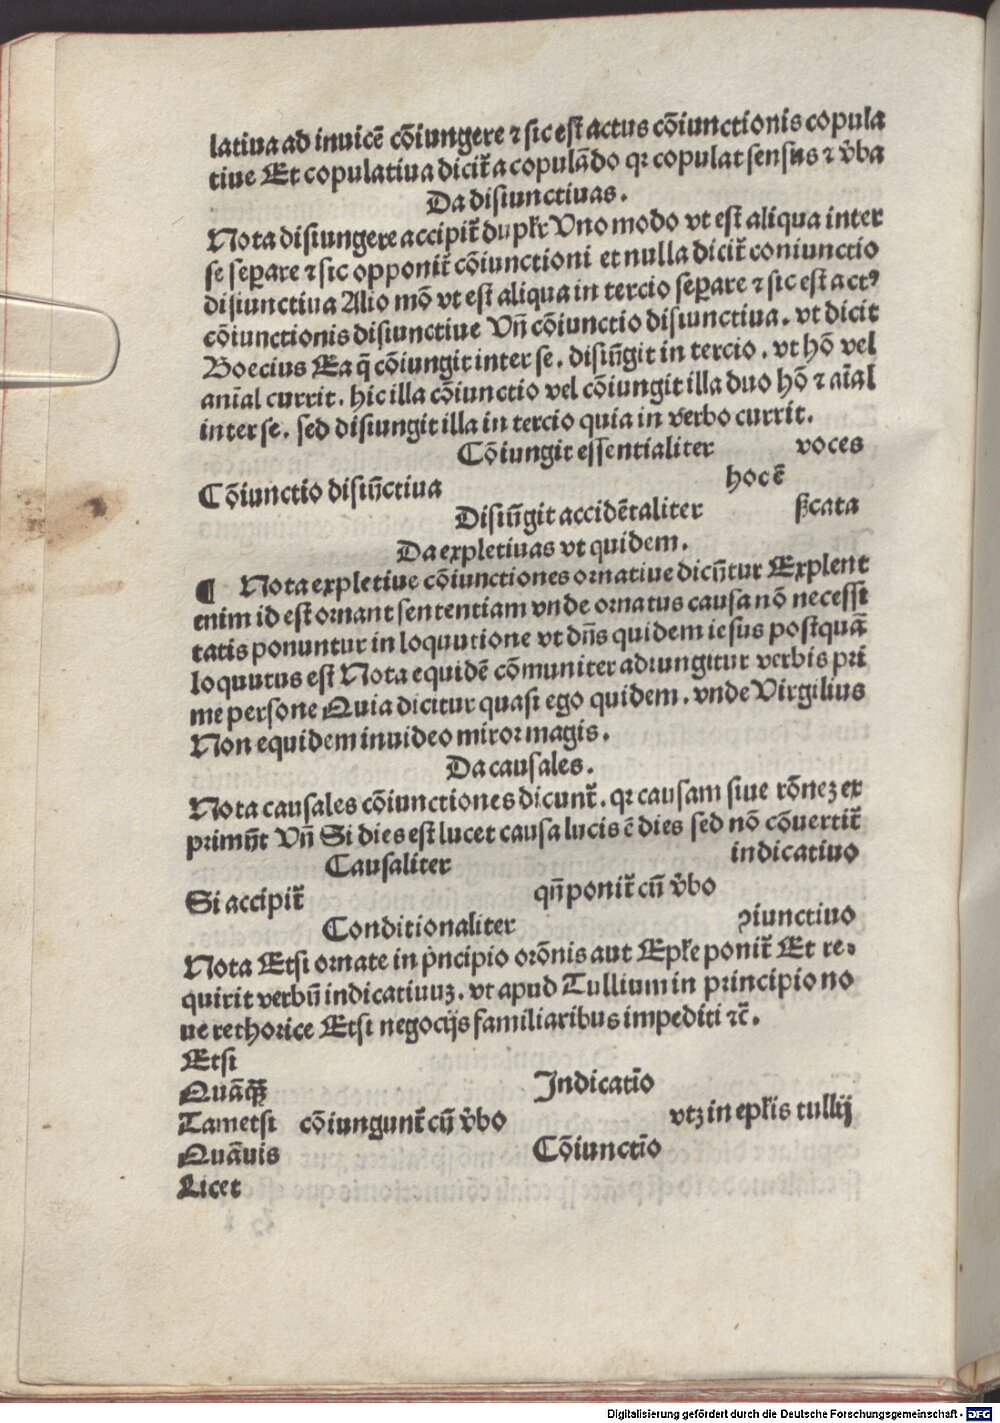 latiua ad inuicē cōiungere ⁊ sic est actus cōiunctionis copula
tiue Et copulatiua dicit̄ a copulādo qꝛ copulat sensus ⁊ v̄ba
Da disiunctiuas.
Nota disiungere accipit̄ duplr̄ Uno modo vt est aliqua inter
se seꝑare ⁊ sic opponit̄ cōiunctioni et nulla dicit̄ coniunctio
disiunctiua Alio mō vt est aliqua in tercio seꝑare ⁊ sic est actꝰ
cōiunctionis disiunctiue Vn̄ cōiunctio disiunctiua. vt dicit
Boecius Ea q̄ cōiungit inter se. disiūgit in tercio. vt hō vel
aīal currit. hic illa cōiunctio vel cōiungit illa duo hō ⁊ aīal
inter se. sed disiungit illa in tercio quia in verbo currit.
Cōiungit essentialiter voces
Cōiunctio disiūctiua hoc ē
Disiūgit accidētaliter ſ̄cata
Da expletiuas vt quidem.
¶ Nota expletiue cōiunctiones ornatiue dicūtur Explent
enim id est ornant sententiam vnde ornatus causa nō necessi
tatis ponuntur in loquutione vt dn̄s quidem iesus postquā
loquutus est Nota equidē cōmuniter adiungitur verbis pri
me persone Quia dicitur quasi ego quidem. vnde Virgilius
Non equidem inuideo miror magis.
Da causales.
Nota causales cōiunctiones dicunt̄. qꝛ causam siue rōneꝫ ex
primūt Vn̄ Si dies est lucet causa lucis ē dies sed nō cōuertit̄
Causaliter indicatiuo
Si accipit̄ qn̄ ponit̄ cū v̄bo
Conditionaliter ꝯiunctiuo
Nota Etsi ornate in pͥncipio orōnis aut Epłe ponit̄ Et re-
quirit verbū indicatiuuꝫ. vt apud Tullium in principio no
ue rethorice Etsi negocijs familiaribus impediti ⁊c̄.
Etsi
Quāꝗ̄ Indicatīo
Tametsi cōiungunt̄ cū v̄bo vtꝫ in epłis tullij
Quāuis Cōiunctīo
Licet
Digitalisierung gefördert durch die Deutsche Forschungsgemeinschaft - DFG